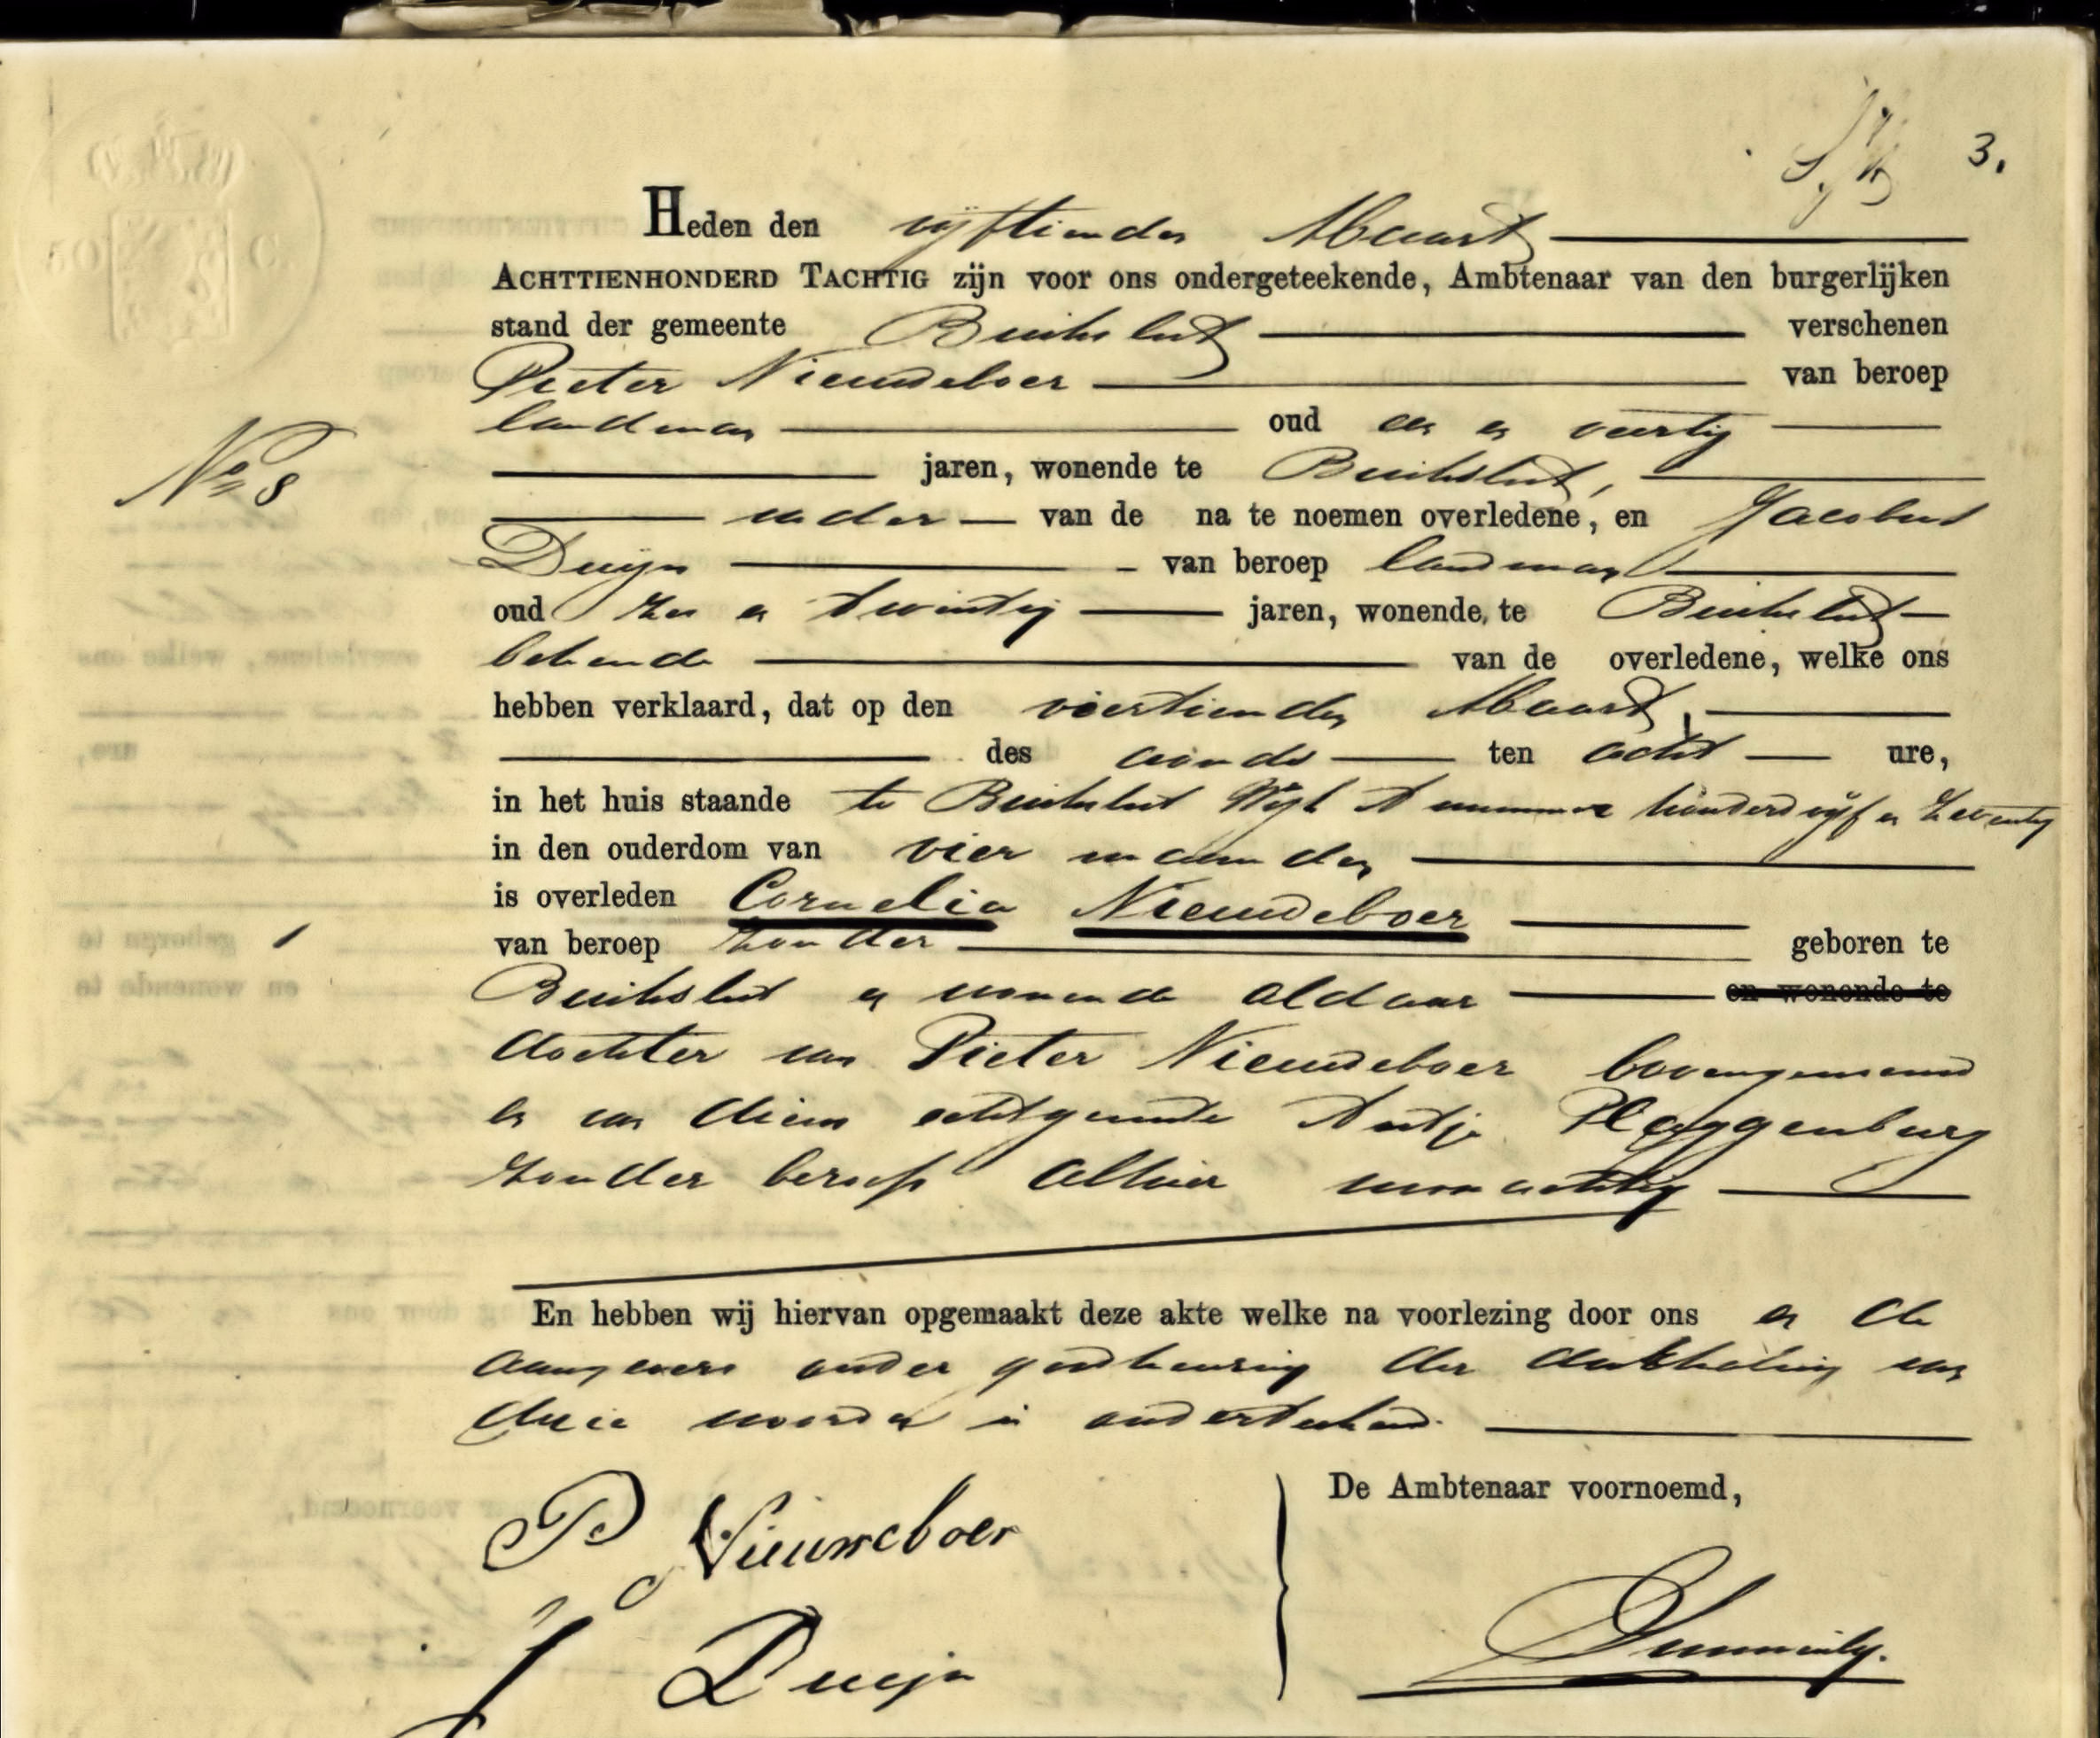 3.
Heden den vijftienden Maart
ACHTTIENHONDERD TACHTIG zijn voor ons ondergeteekende, Ambtenaar van den burgerlijken
stand der gemeente Buiksloot verschenen
Pieter Nieuweboer van beroep
landman oud een en veertig
jaren, wonende te Buiksloot,
vader van de na te noemen overledene, en Jacobus
Duijn van beroep landman
oud zes en twintig jaren, wonende te Buiksloot
bekende van de overledene, welke ons
hebben verklaard, dat op den veertienden Maart,
des avonds ten acht ure,
in het huis staande te Buiksloot Wijk A nummer honderd vijf en zeventig
in den ouderdom van vier maanden
is overleden Cornelia Nieuweboer
van beroep zonder geboren te
Buiksloot en wonende aldaar en wonende te
No 8
dochter van Pieter Nieuweboer bovengenoemd
en van diens echtgenoote Antje Plaggenburg
zonder beroep alhier woonachtig
En hebben wij hiervan opgemaakt deze akte welke na voorlezing door ons en de
aangevers onder goedkeuring der doorhaling van
drie woorden is onderteekend.
De Ambtenaar voornoemd,
P Nieuweboer
J Duijn
50 C.